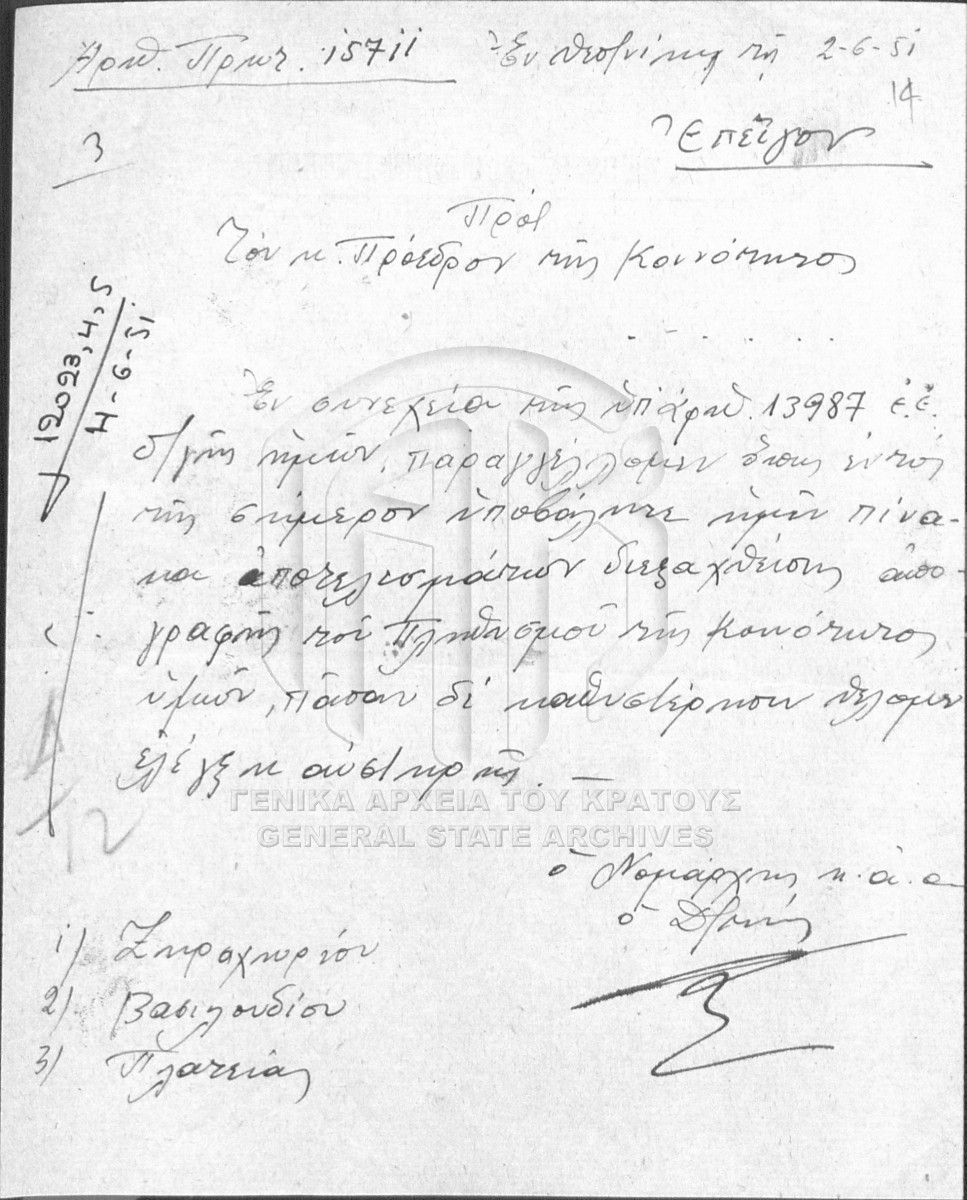 Ἀριθ. Πρωτ. 15711
Ἐν Θεσ/νίκῃ τῇ 2-6-51
14
3
Ἐπεῖγον
Πρός
Τόν κ. Πρόεδρον τῆς Κοινότητος
. . . . .
12023,4,5
4-6-51
Ἐν συνεχείᾳ τῆς ὑπ' ἀριθ. 13987 ἐ.ἔ.
δ/γῆς ἡμῶν, παραγγέλλομεν ὅπως ἐντός
τῆς σήμερον ὑποβάλητε ἡμῖν πίνα-
κα ἀποτελεσμάτων διεξαχθείσης ἀπο-
γραφῆς τοῦ Πληθυσμοῦ τῆς Κοινότητος
ὑμῶν, πᾶσαν δέ καθυστέρησιν θέλομεν
ἐλέγξῃ αὐστηρῶς. —
ΓΕΝΙΚΑ ΑΡΧΕΙΑ ΤΟΥ ΚΡΑΤΟΥΣ
GENERAL STATE ARCHIVES
12
ὁ Νομάρχης κ.ἀ.α
ὁ Δ/τής
1) Ξηροχωρίου
2) Βασιλουδίου
3) Πλατείας